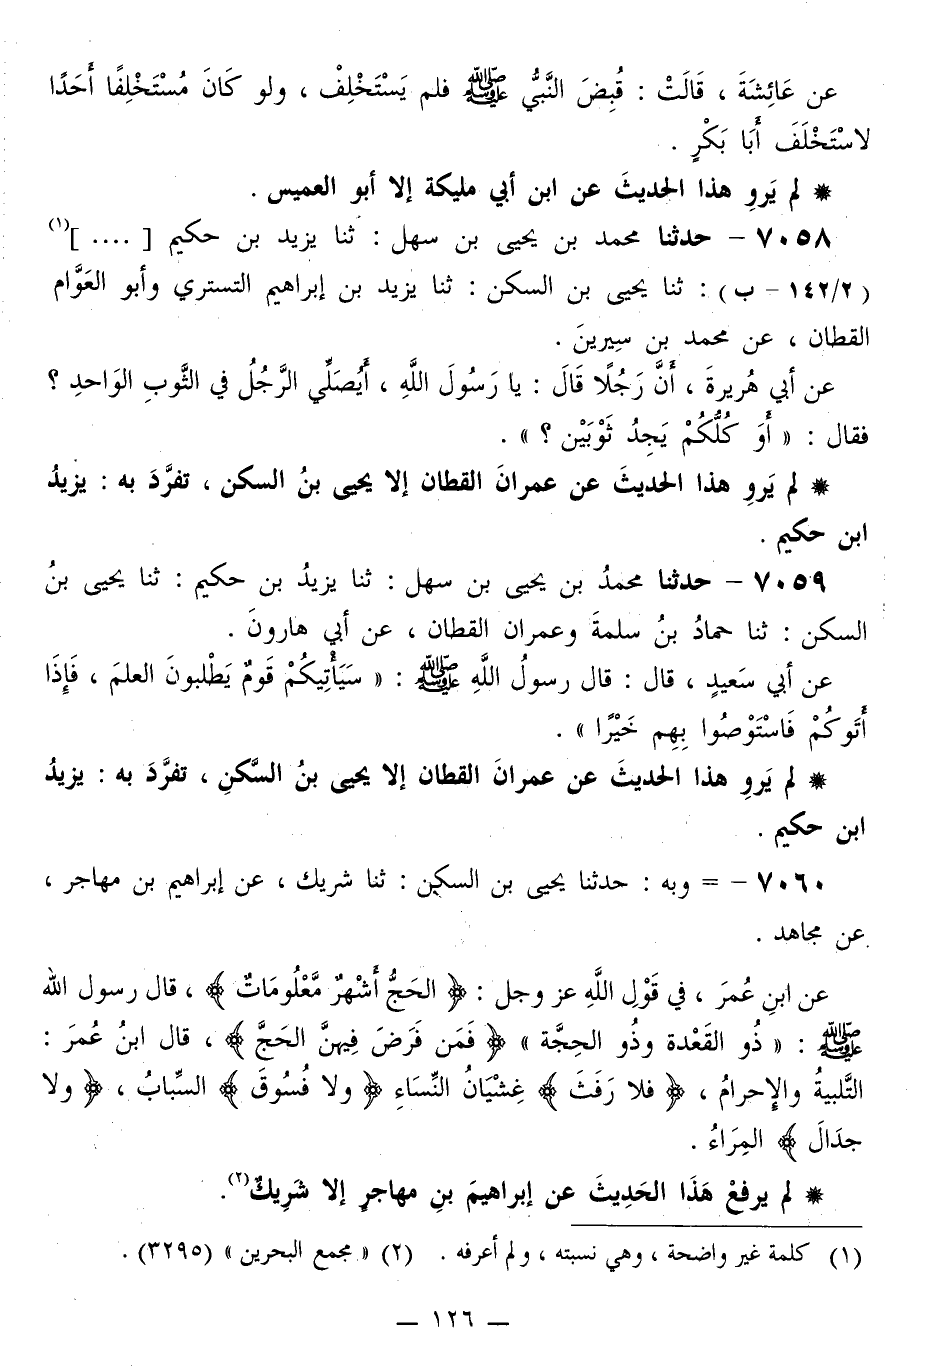 عن عَائِشَةَ ، قَالَتْ : قُبِضَ النَّبيُّ ﷺ فلم يَسْتَخْلِفْ ، ولو كَانَ مُسْتَخْلِفًا أَحَدًا
لاسْتَخْلَفَ أَبَا بَكْرٍ .
* لم يَروِ هذا الحديثَ عن ابن أبي مليكة إلا أبو العميس .
٧٠٥٨ - حدثنا محمد بن يحيى بن سهل : ثنا يزيد بن حكيم [ .... ](١)
( ١٤٢/٢ - ب ) : ثنا يحيى بن السكن : ثنا يزيد بن إبراهيم التستري وأبو العَوَّام
القطان ، عن محمد بن سِيرينَ .
عن أبي هُريرةَ ، أَنَّ رَجُلًا قَالَ : يا رَسُولَ اللَّهِ ، أَيُصَلِّي الرَّجُلُ في الثَّوبِ الوَاحدِ ؟
فقال : « أَوَ كُلُّكُمْ يَجِدُ ثَوْبَيْن ؟ » .
* لم يَروِ هذا الحديثَ عن عمرانَ القطان إلا يحيى بنُ السكن ، تفرَّدَ به : يزيدُ
ابن حكيم .
٧٠٥٩ - حدثنا محمدُ بن يحيى بن سهل : ثنا يزيدُ بن حكيم : ثنا يحيى بنُ
السكن : ثنا حمادُ بنُ سلمةَ وعمران القطان ، عن أبي هارونَ .
عن أبي سَعيدٍ ، قال : قال رسولُ اللَّهِ ﷺ : « سَيَأْتِيكُمْ قَومٌ يَطْلبونَ العلمَ ، فَإِذَا
أَتَوكُمْ فَاسْتَوْصُوا بِهِم خَيْرًا » .
* لم يَروِ هذا الحديثَ عن عمرانَ القطان إلا يحيى بنُ السَّكنِ ، تفرَّدَ به : يزيدُ
ابن حكيم .
٧٠٦٠ - = وبه : حدثنا يحيى بن السكن : ثنا شريك ، عن إبراهيم بن مهاجر ،
عن مجاهد .
عن ابنِ عُمرَ ، في قَوْلِ اللَّهِ عز وجل : ﴿ الحَجُّ أَشْهرٌ مَّعْلُومَاتٌ ﴾ ، قال رسول الله
ﷺ : « ذُو القَعْدة وذُو الحِجَّة » ﴿ فَمَن فَرَضَ فِيهنَّ الحَجَّ ﴾ ، قال ابنُ عُمرَ :
التَّلبيةُ والإِحرامُ ، ﴿ فلا رَفَثَ ﴾ غِشْيَانُ النِّسَاءِ ﴿ ولا فُسُوقَ ﴾ السِّبابُ ، ﴿ ولا
جدَالَ ﴾ المِرَاءُ .
* لم يرفعْ هَذَا الحَدِيثَ عن إبراهيمَ بنِ مهاجرٍ إلا شَرِيكٌ(٢).
(١) كلمة غير واضحة ، وهي نسبته ، ولم أعرفه . (٢) « مجمع البحرين » (٣٢٩٥) .
— ١٢٦ —